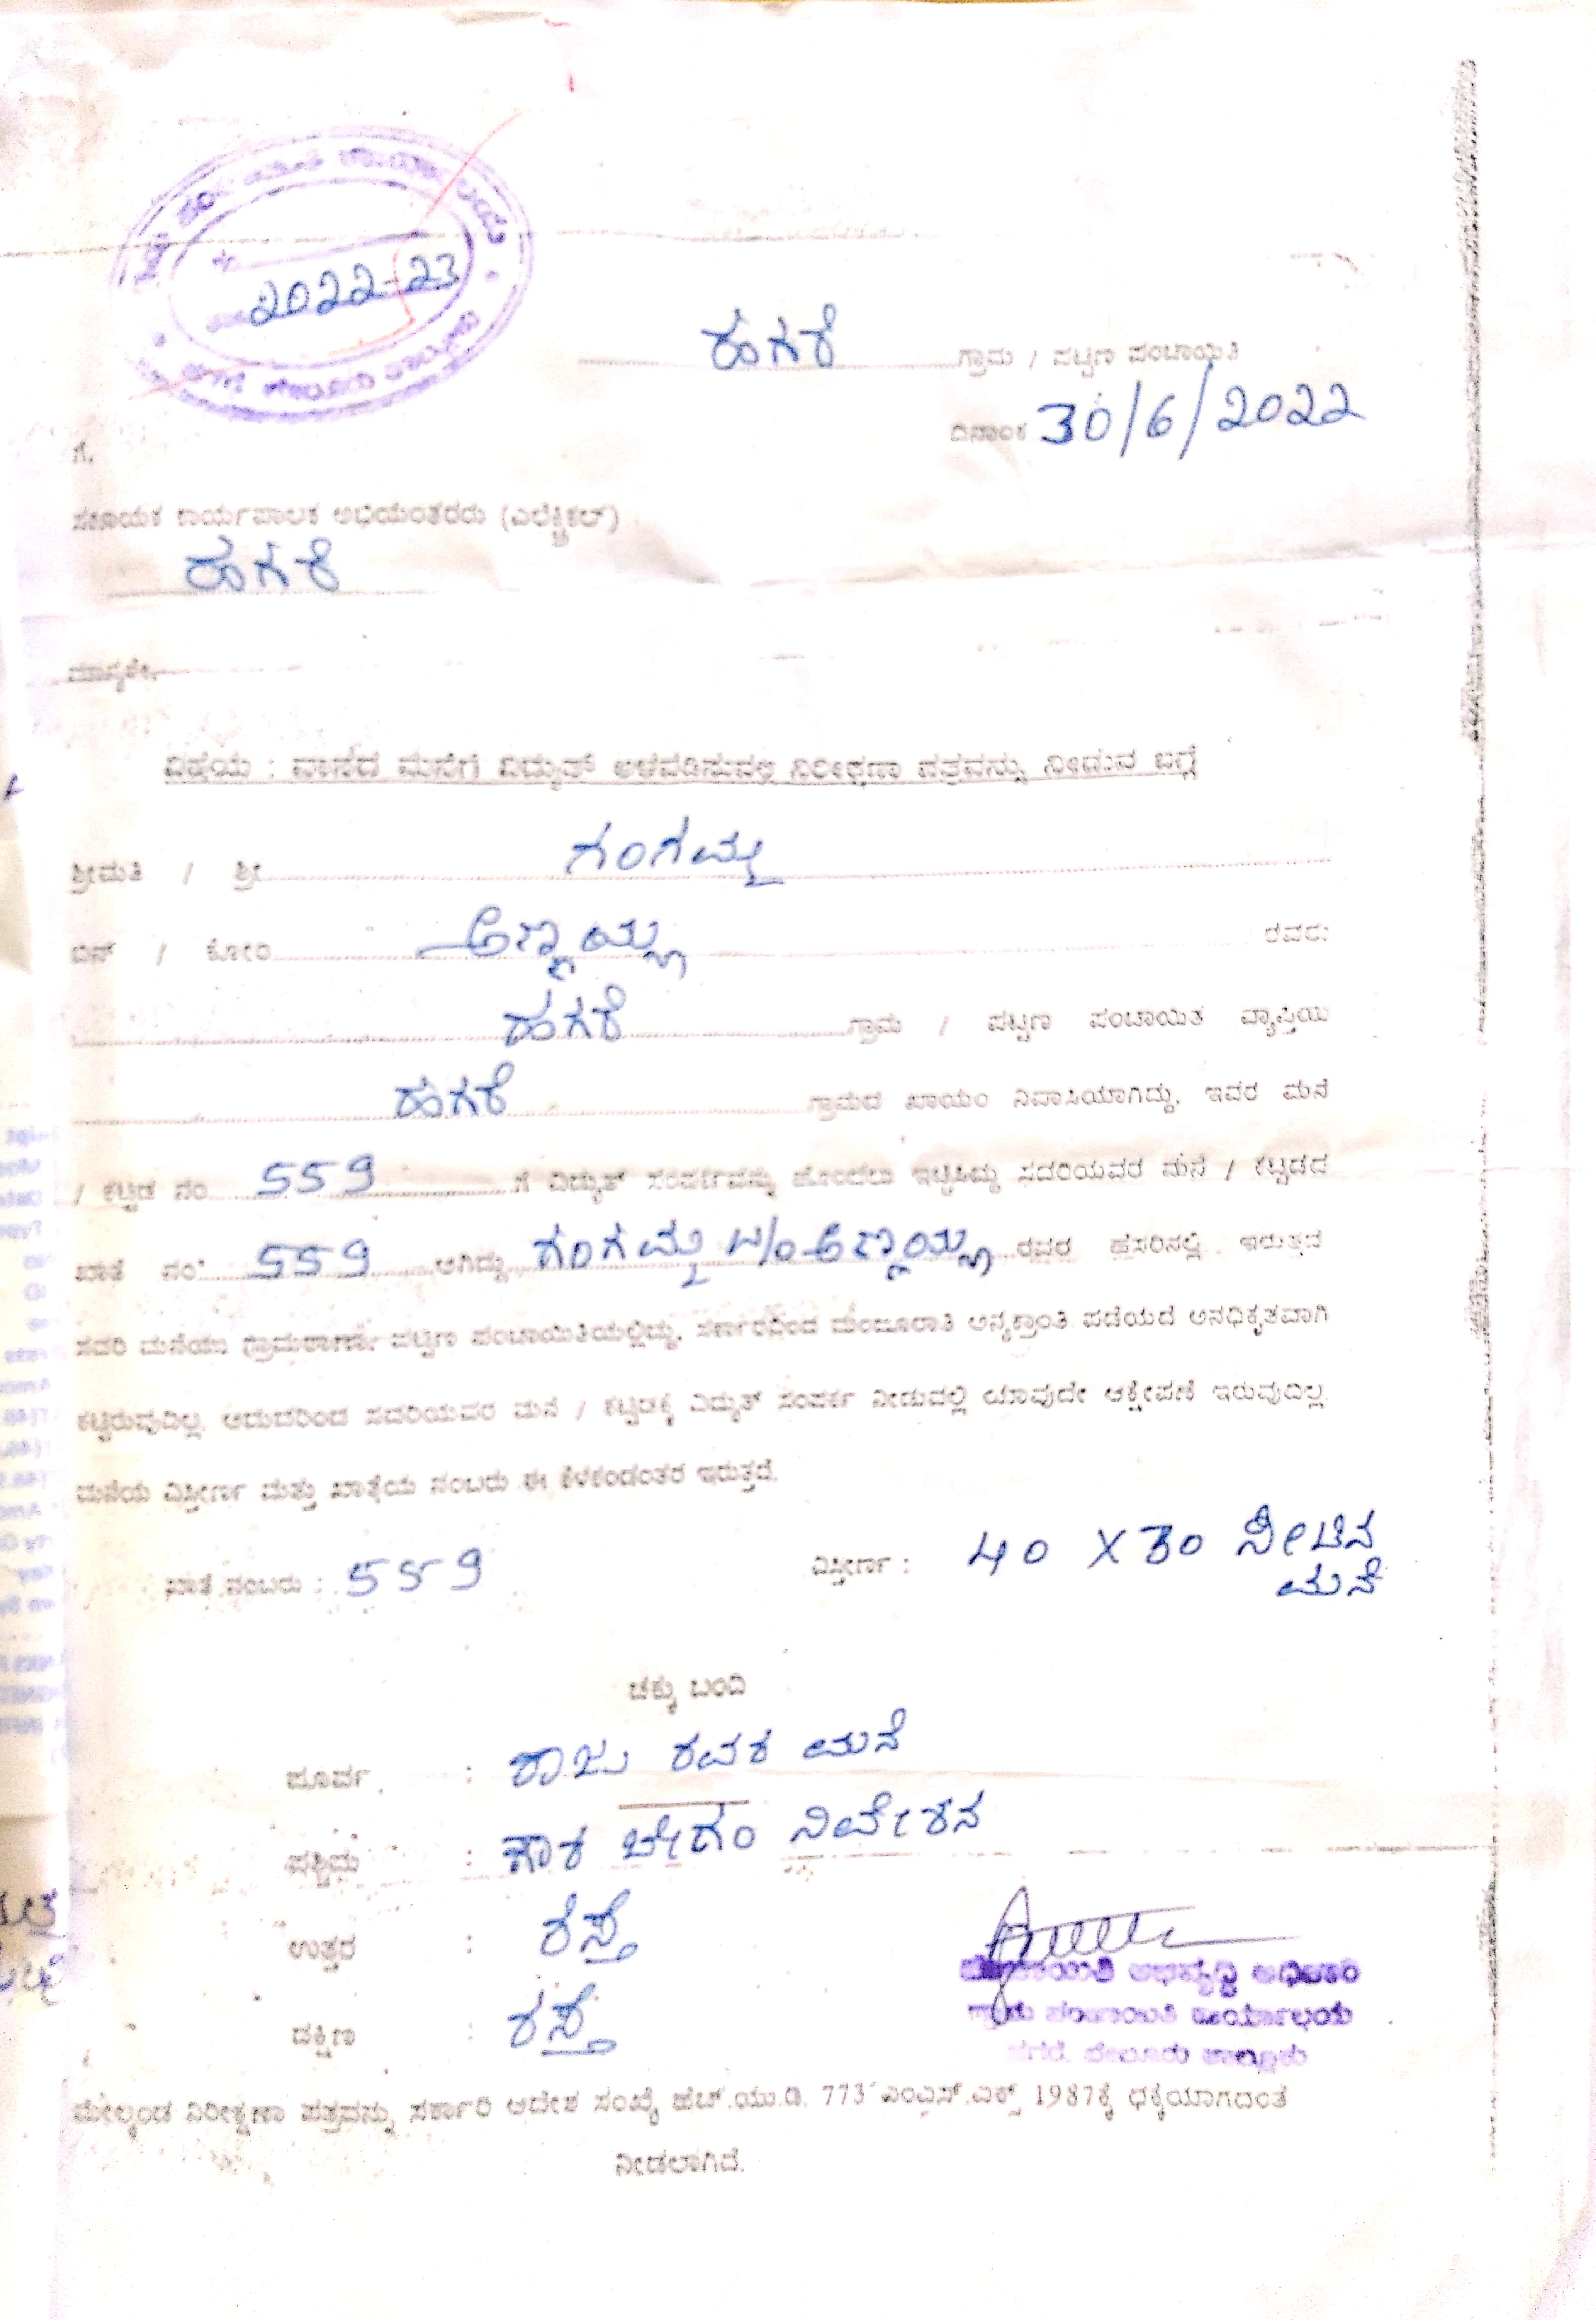 2022-23
ಹಗರೆ ಗ್ರಾಮ / ಪಟ್ಟಣ ಪಂಚಾಯಿತಿ
ದಿನಾಂಕ 30/6/2022
ಗೆ.
ಸಹಾಯಕ ಕಾರ್ಯಪಾಲಕ ಅಭಿಯಂತರರು (ಎಲೆಕ್ಟ್ರಿಕಲ್)
ಹಗರೆ
ಮಾನ್ಯರೇ.
ವಿಷಯ : ವಾಸದ ಮನೆಗೆ ವಿದ್ಯುತ್ ಅಳವಡಿಸುವಲ್ಲಿ ನಿರೀಕ್ಷಣಾ ಪತ್ರವನ್ನು ನೀಡುವ ಬಗ್ಗೆ
ಶ್ರೀಮತಿ / ಶ್ರೀ ಗಂಗಮ್ಮ
ಬಿನ್ / ಕೋಂ ಅಣ್ಣಯ್ಯ ರವರು
ಹಗರೆ ಗ್ರಾಮ / ಪಟ್ಟಣ ಪಂಚಾಯಿತ ವ್ಯಾಪ್ತಿಯ
ಹಗರೆ ಗ್ರಾಮದ ಖಾಯಂ ನಿವಾಸಿಯಾಗಿದ್ದು, ಇವರ ಮನೆ
/ ಕಟ್ಟಡ ನಂ 559 ಗೆ ವಿದ್ಯುತ್ ಸಂಪರ್ಕವನ್ನು ಹೊಂದಲು ಇಚ್ಛಿಸಿದ್ದು ಸದರಿಯವರ ಮನೆ / ಕಟ್ಟಡದ
ಖಾತೆ ನಂ 559 ಆಗಿದ್ದು ಗಂಗಮ್ಮ W/o ಅಣ್ಣಯ್ಯ ರವರ ಹೆಸರಿನಲ್ಲಿ ಇರುತ್ತದೆ
ಸದರಿ ಮನೆಯು ಗ್ರಾಮಠಾಣಾ ಪಟ್ಟಣ ಪಂಚಾಯಿತಿಯಲ್ಲಿದ್ದು, ಸರ್ಕಾರದಿಂದ ಮಂಜೂರಾತಿ ಅನ್ಯಕ್ರಾಂತಿ ಪಡೆಯದೆ ಅನಧಿಕೃತವಾಗಿ
ಕಟ್ಟಿರುವುದಿಲ್ಲ. ಆದುದರಿಂದ ಸದರಿಯವರ ಮನೆ / ಕಟ್ಟಡಕ್ಕೆ ವಿದ್ಯುತ್ ಸಂಪರ್ಕ ನೀಡುವಲ್ಲಿ ಯಾವುದೇ ಆಕ್ಷೇಪಣೆ ಇರುವುದಿಲ್ಲ.
ಮನೆಯ ವಿಸ್ತೀರ್ಣ ಮತ್ತು ಖಾತೆಯ ನಂಬರು ಈ ಕೆಳಕಂಡಂತರ ಇರುತ್ತದೆ.
ಖಾತೆ ನಂಬರು : 559 ವಿಸ್ತೀರ್ಣ : 40 X 30 ಶೀಟಿನ
ಮನೆ
ಚಕ್ಕು ಬಂದಿ
ಪೂರ್ವ : ರಾಜು ರವರ ಮನೆ
ಪಶ್ಚಿಮ : ಬೇಗಂ ನಿವೇಶನ
ಉತ್ತರ : ರಸ್ತೆ
ದಕ್ಷಿಣ : ರಸ್ತೆ
ಅಭಿವೃದ್ಧಿ ಅಧಿಕಾರಿ
ಗ್ರಾಮ ಪಂಚಾಯಿತಿ ಕಾರ್ಯಾಲಯ
ಹಗರೆ, ಬೇಲೂರು ತಾಲ್ಲೂಕು
ಮೇಲ್ಕಂಡ ನಿರೀಕ್ಷಣಾ ಪತ್ರವನ್ನು ಸರ್ಕಾರಿ ಆದೇಶ ಸಂಖ್ಯೆ ಹೆಚ್.ಯು.ಡಿ. 773 ಎಂಎನ್.ಎಕ್ಸ್ 1987ಕ್ಕೆ ಧಕ್ಕೆಯಾಗದಂತೆ
ನೀಡಲಾಗಿದೆ.